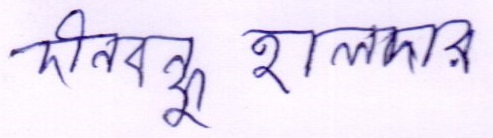 দীনবন্ধু হালদার